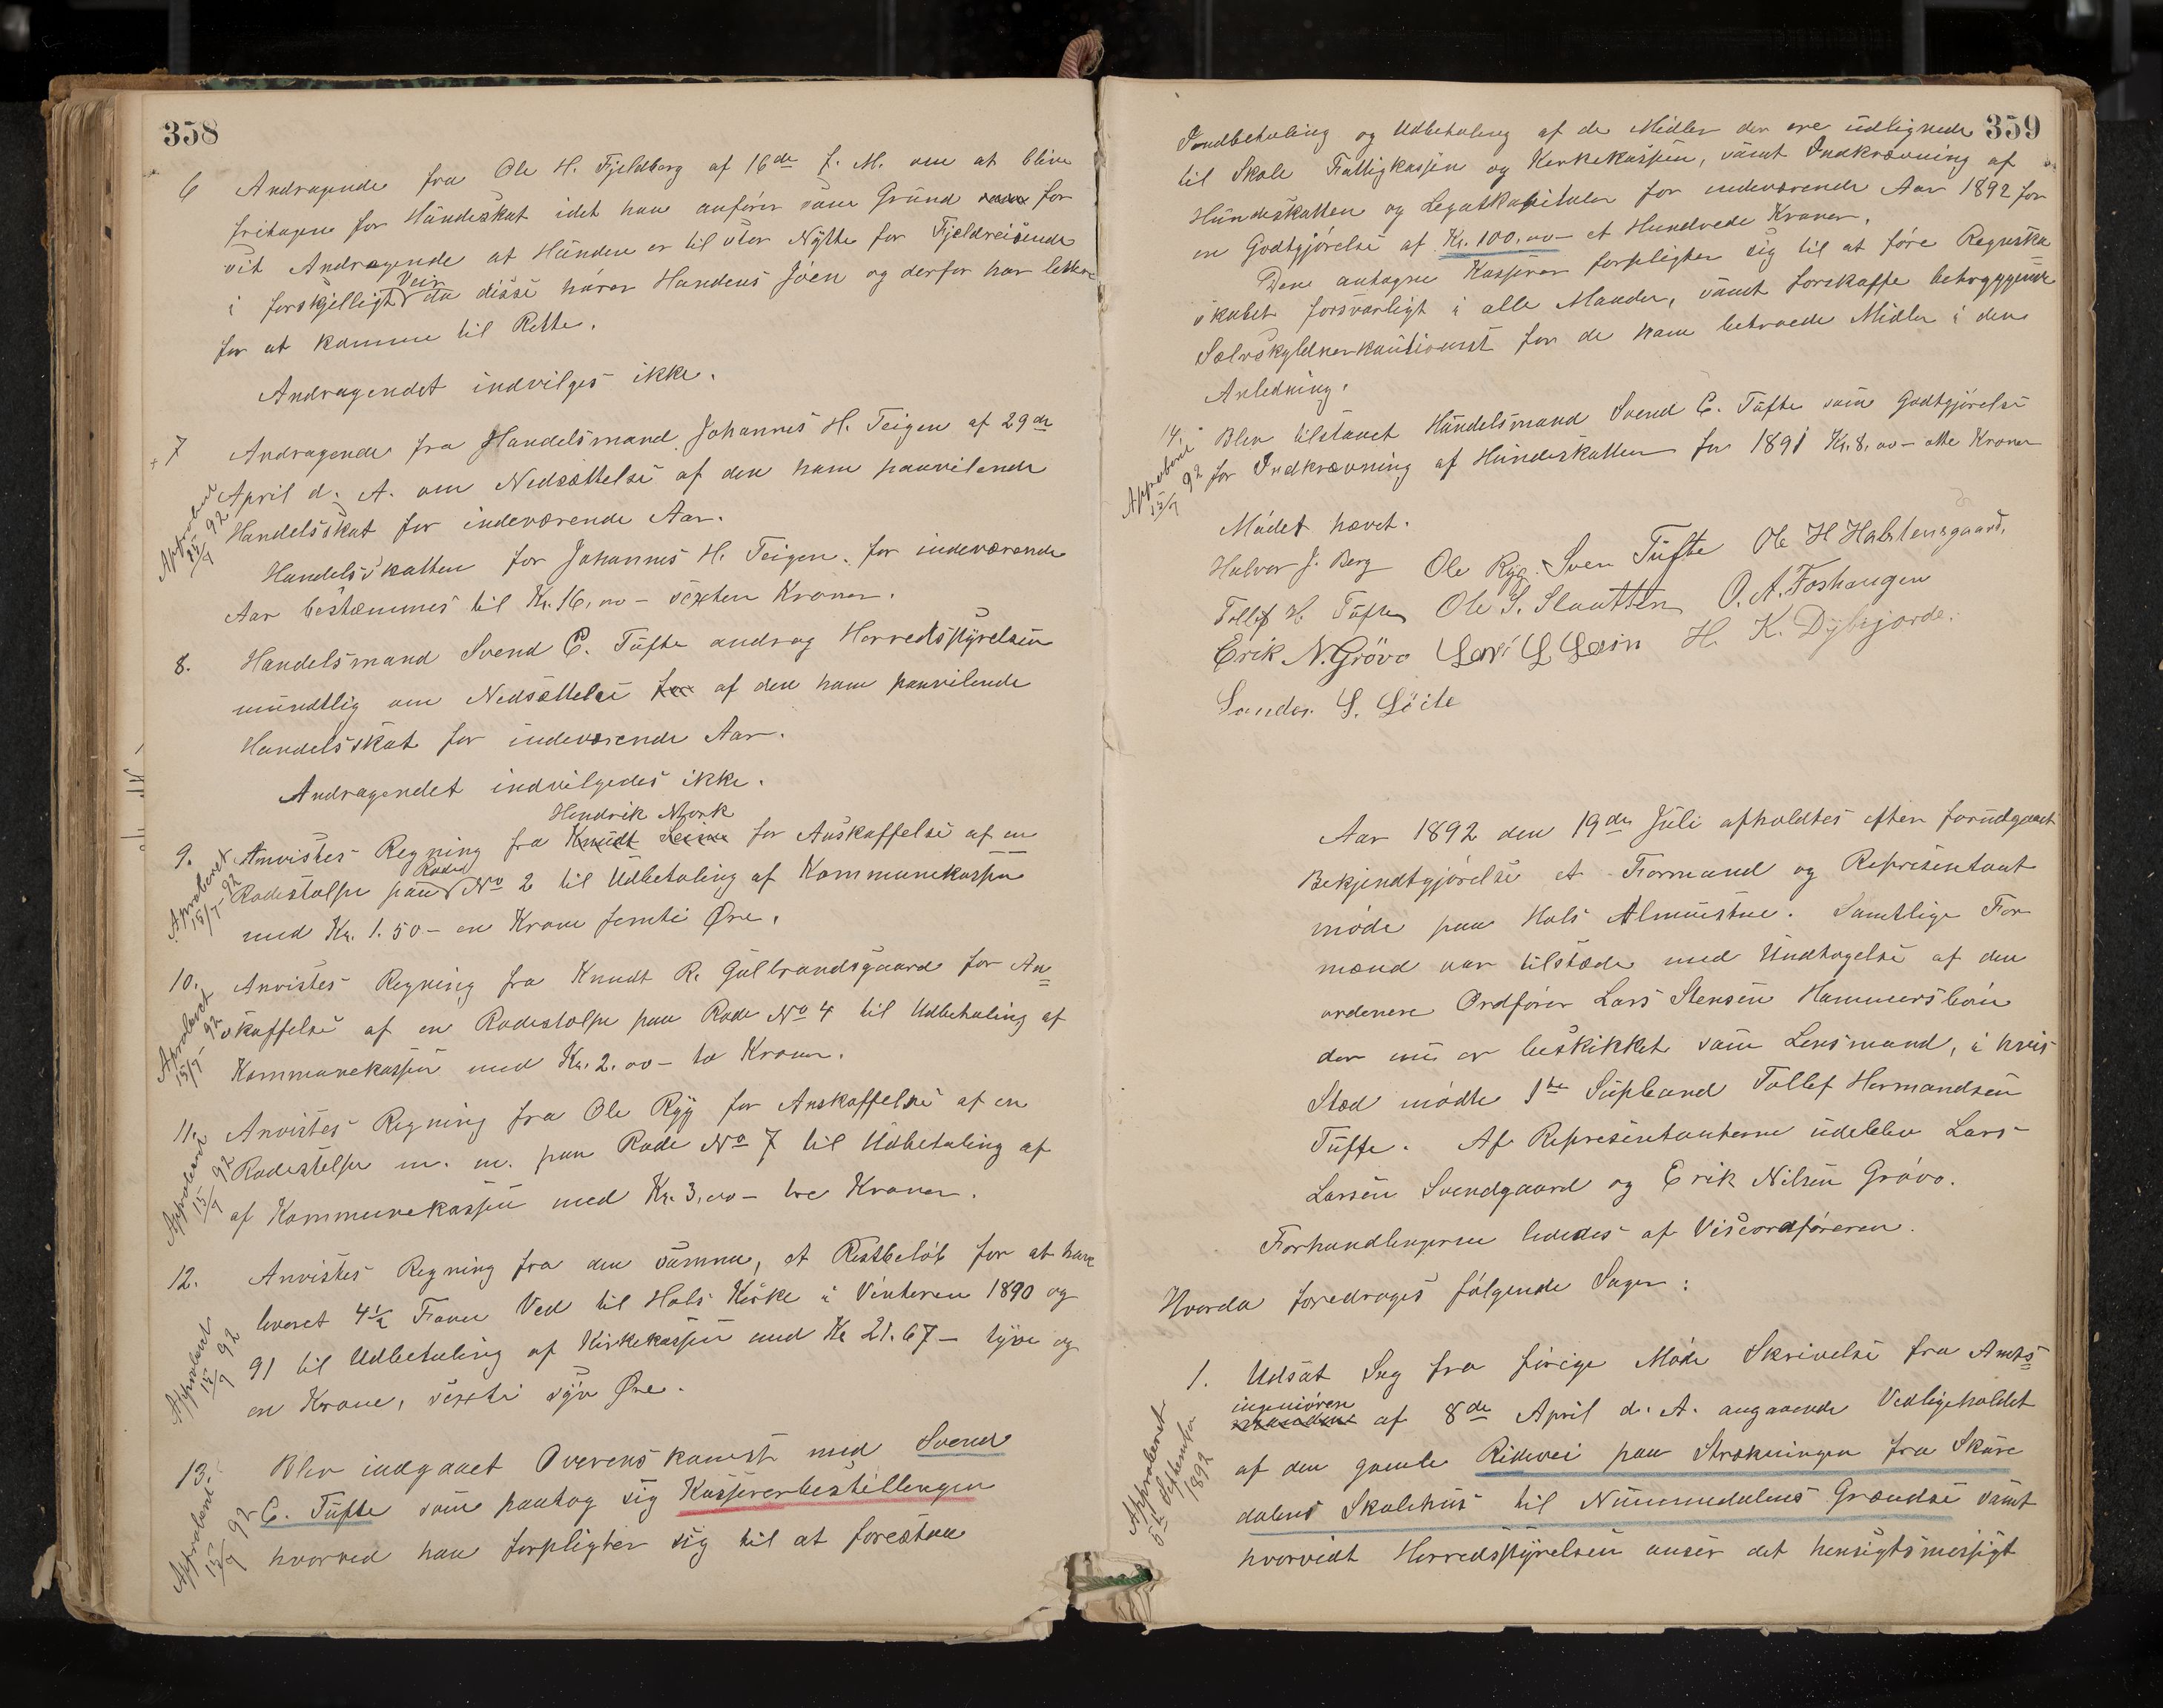 358
6 Andragende fra Ole H. Fjeldberg af 16de f. M. om at blive
fritagen for Hundeskat idet han anfører som Grund for
sit Andragende at Hunden er til stor Nytte for Fjeldreisende
Veir
i forskjelligt da disse hører Hundens Gjøen og derfor har lettere
for at komme til Rette.
Andragendet indvilges ikke.
7 Andragende fra Handelsmand Johannes H. Teigen af 29de
April d. A. om Nedsættelse af den ham paavilende
Handelsskat for indeværende Aar.
Approberet 15/9 92
Handelsskatten for Johannes H. Teigen for indeværende
Aar bestemmes til Kr. 16,00 – sexten Kroner.
8. Handelsmand Svend E. Tufte androg Herredsstyrelsen
mundtlig om Nedsættelse for af den ham paavilende
Handelsskat for indeværende Aar.
Andragendet indvilgedes ikke.
Hendrik Mork
9. Anvistes Regning fra Knudt Leine for Anskaffelse af en
Rode
Rodestolpe paa No 2 til Udbetaling af Kommunekassen
med Kr. 1.50 – en Krone femti Øre.
Aproberet 15/9 92
10. Anvistes Regning fra Knudt R. Gulbrandsgaard for An=
skaffelse af en Rodestolpe paa Rode No 4 til Udbetaling af
Kommunekassen med Kr. 2.00 – to Kroner.
Aproberet 15/9 92
11. Anvistes Regning fra Ole Ryg for Anskaffelse af en
Rodestolpe m. m. paa Rode No 7 til Udbetaling af
af Kommunekassen med Kr. 3,00 – tre Kroner.
Approberet 15/9 92
12. Anvistes Regning fra den samme, et Restbeløb for at have
leveret 4½ Favn Ved til Hols Kirke i Vinteren 1890 og
91 til Udbetaling af Kirkekassen med Kr 21.67 – tyve og
en Krone, sexti syv Øre.
Approberet 15/9 92
13. Blev indgaaet Overenskomst med Svend
E. Tufte som paatog sig Kassererbestillingen
hvorved han forpligter sig til at forestaa
Approberet 15/9 92
359
Indbetaling og Udbetaling af de Midler der ere udlignede
til Skole Fattigkassen og Kirkekassen, samt Indkrævning af
Hundeskatten og Legatkapitaler for indeværende Aar 1892 for
en Godtgjørelse af Kr. 100,00 – et Hundrede Kroner.
Den antagne Kasserer forpligter sig til at føre Regnska
skabet forsvarligt i alle Maader, samt forskaffe betryggende
Selvskyldnerkautionist for de ham betroede Midler i den
Anledning.
14. Blev tilstaaet Handelsmand Svend E. Tufte som Godtgjørelse
for Indkrævning af Hundeskatten for 1891 Kr. 8,00 – otte Kroner
Approberet 15/9 92
Mødet hævet.
Halvor J. Berg Ole Ryg. Sven Tufte Ole H Halstensgaard,
Tollef H Tufte Ole S. Slaatten O. A. Foshaugen
Erik N. Grövo Lars L Lein H. K. Dybsjorde.
Sander S. Löite
Aar 1892 den 19de Juli afholdtes efter forudgaaet
Bekjendtgjørelse et Formand og Repræsentant
møde paa Hols Almustue. Samtlige For
mænd var tilstæde med Undtagelse af den
ordenere Ordfører Lars Stensen Hammersbøen
der nu er beskikket som Lensmand, i hvis
Sted mødte 1ste Supleand Tollef Hermandsen
Tufte. Af Repræsentanterne udeblev Lars
Larsen Svendgaard og Erik Nilsen Grøvo.
Forhandlingerne lededes af Viseordføreren.
Hvorda foredroges følgende Sager:
1. Udsat Sag fra forige Møde Skrivelse fra Amts=
ingeniøren
af 8de April d. A. angaaende Vedligeholdet
af den gamle Ridevei paa Strækningen fra Skure
dalens Skolehus til Nummedalens Grændse samt
hvorvidt Herredsstyrelsen anser det hensigtsmessigt
Approberet 5te September 1892